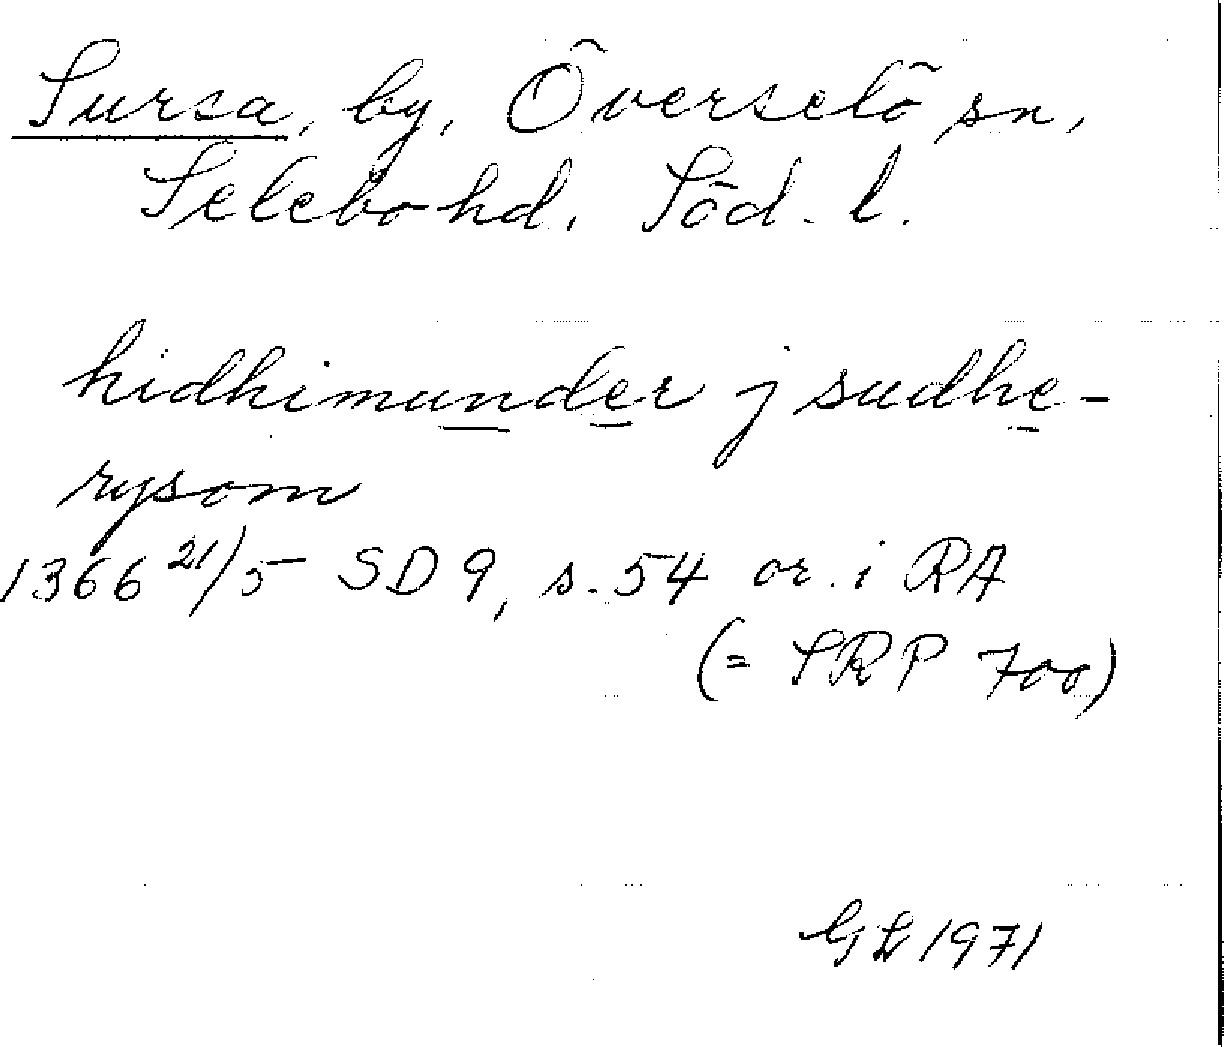 Sursa, by, Överselö sn,
Selebo hd, Söd. l.
hidhimunder j sudhe-
rysom
1366 21/5 SD 9, s. 54 or. i RA
(= SRP 700)
GL 1971